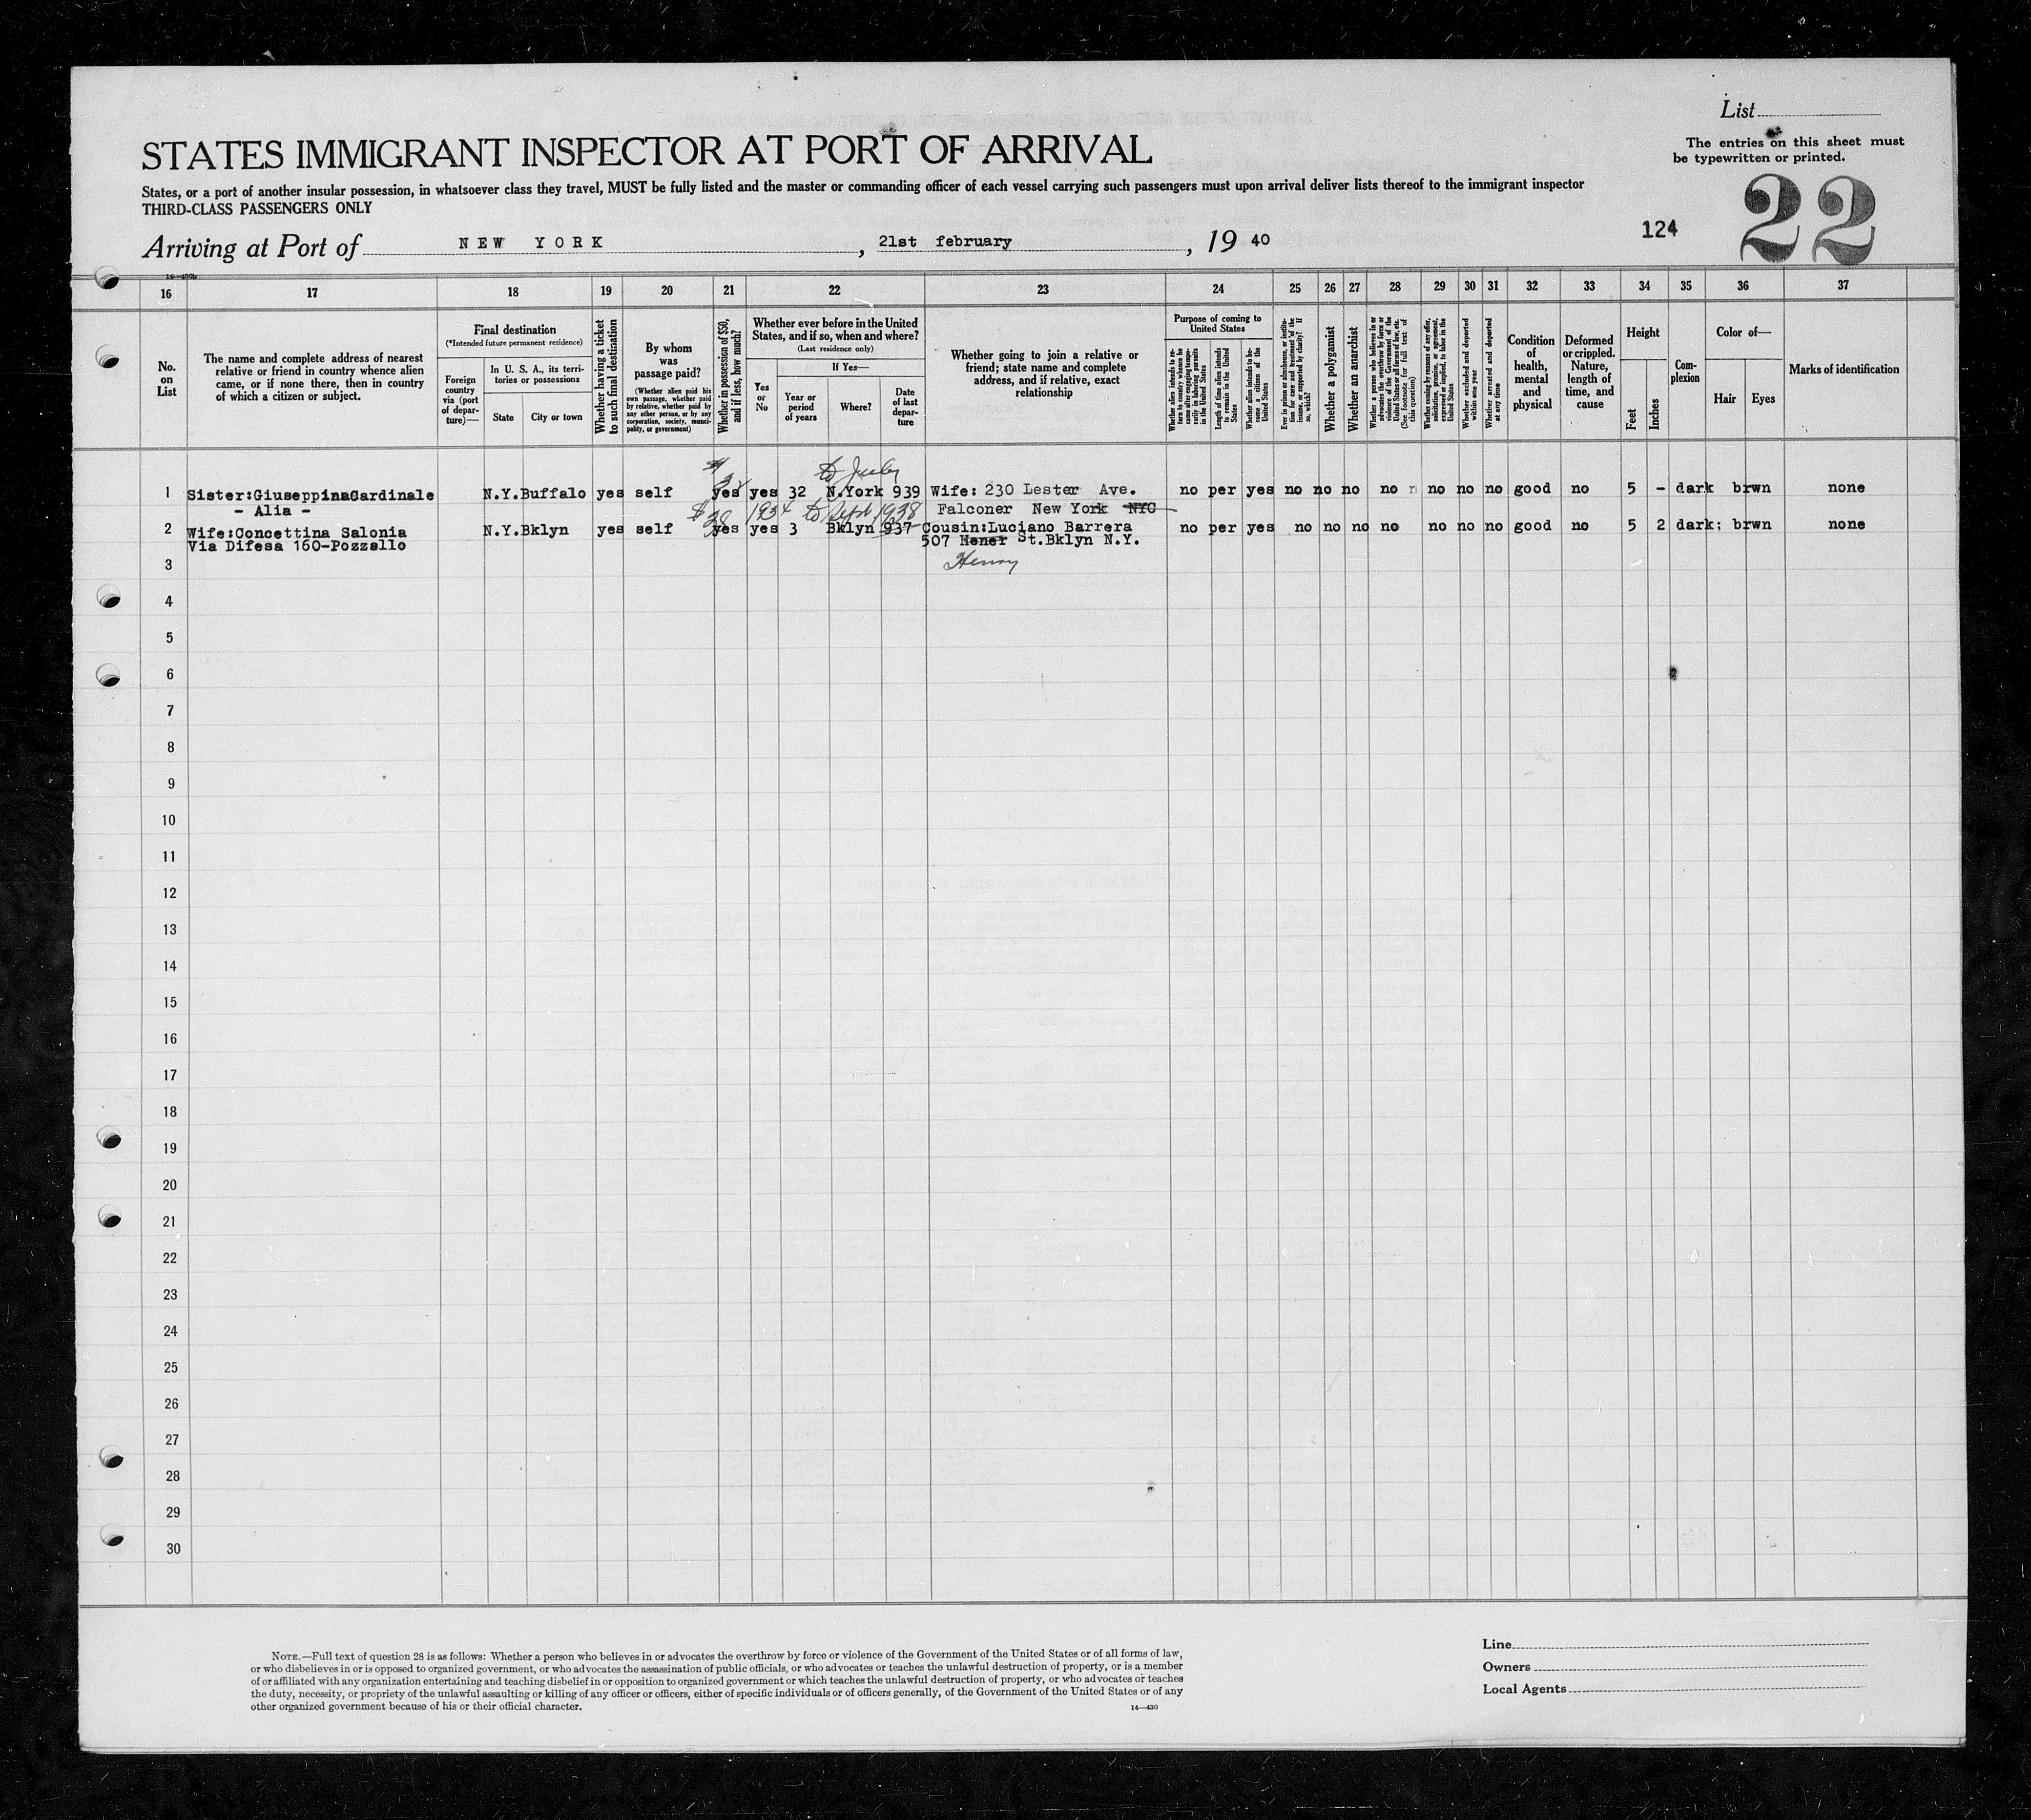 List
STATES IMMIGRANT INSPECTOR AT PORT OF ARRIVAL
The entries on this sheet must
be typewritten or printed.
States, or a port of another insular possession, in whatsoever class they travel, MUST be fully listed and the master or commanding officer of each vessel carrying such passengers must upon arrival deliver lists thereof to the immigrant inspector
THIRD-CLASS PASSENGERS ONLY
124 22
Arriving at Port of NEW YORK, 21st february, 19 40
16 17 18 19 20 21 22 23 24 25 26 27 28 29 30 31 32 33 34 35 36 37
No.
on
List
The name and complete address of nearest
relative or friend in country whence alien
came, or if none there, then in country
of which a citizen or subject.
Final destination
(*Intended future permanent residence)
Foreign
country
via (port
of depar-
ture)—
In U. S. A., its terri-
tories or possessions
State
City or town
Whether having a ticket
to such final destination
By whom
was
passage paid?
(Whether alien paid his
own passage, whether paid
by relative, whether paid by
any other person, or by any
corporation, society, munici-
pality, or government)
Whether in possession of $50,
and if less, how much?
Whether ever before in the United
States, and if so, when and where?
(Last residence only)
Yes
or
No
If Yes—
Year or
period
of years
Where?
Date
of last
depar-
ture
Whether going to join a relative or
friend; state name and complete
address, and if relative, exact
relationship
Purpose of coming to
United States
Whether alien intends to re-
turn to country whence he
came after engaging tempo-
rarily in laboring pursuits
in the United States
Length of time alien intends
to remain in the United
States
Whether alien intends to be-
come a citizen of the
United States
Ever in prison or almshouse, or institu-
tion for care and treatment of the
insane, or supported by charity? If
so, which?
Whether a polygamist
Whether an anarchist
Whether a person who believes in or
advocates the overthrow by force or
violence of the Government of the
United States or all forms of law, etc.
(See footnote for full text of
this question)
Whether coming by reason of any offer,
solicitation, promise, or agreement,
expressed or implied, to labor in the
United States
Whether excluded and deported
within one year
Whether arrested and deported
at any time
Condition
of
health,
mental
and
physical
Deformed
or crippled.
Nature,
length of
time, and
cause
Height
Feet
Inches
Com-
plexion
Color of—
Hair
Eyes
Marks of identification
to July
1 Sister:GiuseppinaCardinale N.Y. Buffalo yes self yes yes 32 N.York 939 Wife: 230 Lester Ave. no per yes no no no no n no no no good no 5 - dark brwn none
- Alia - $38 1934 to Sept 1938 Falconer New York NYC
2 Wife:Concettina Salonia N.Y. Bklyn yes self yes yes 3 Bklyn 937 Cousin:Luciano Barrera no per yes no no no no no no no good no 5 2 dark; brwn none
Via Difesa 160-Pozzallo 507 Hener St.Bklyn N.Y.
3 Henry
4
5
6
7
8
9
10
11
12
13
14
15
16
17
18
19
20
21
22
23
24
25
26
27
28
29
30
NOTE.—Full text of question 28 is as follows: Whether a person who believes in or advocates the overthrow by force or violence of the Government of the United States or of all forms of law,
or who disbelieves in or is opposed to organized government, or who advocates the assassination of public officials, or who advocates or teaches the unlawful destruction of property, or is a member
of or affiliated with any organization entertaining and teaching disbelief in or opposition to organized government or which teaches the unlawful destruction of property, or who advocates or teaches
the duty, necessity, or propriety of the unlawful assaulting or killing of any officer or officers, either of specific individuals or of officers generally, of the Government of the United States or of any
other organized government because of his or their official character.
14—430
Line
Owners
Local Agents